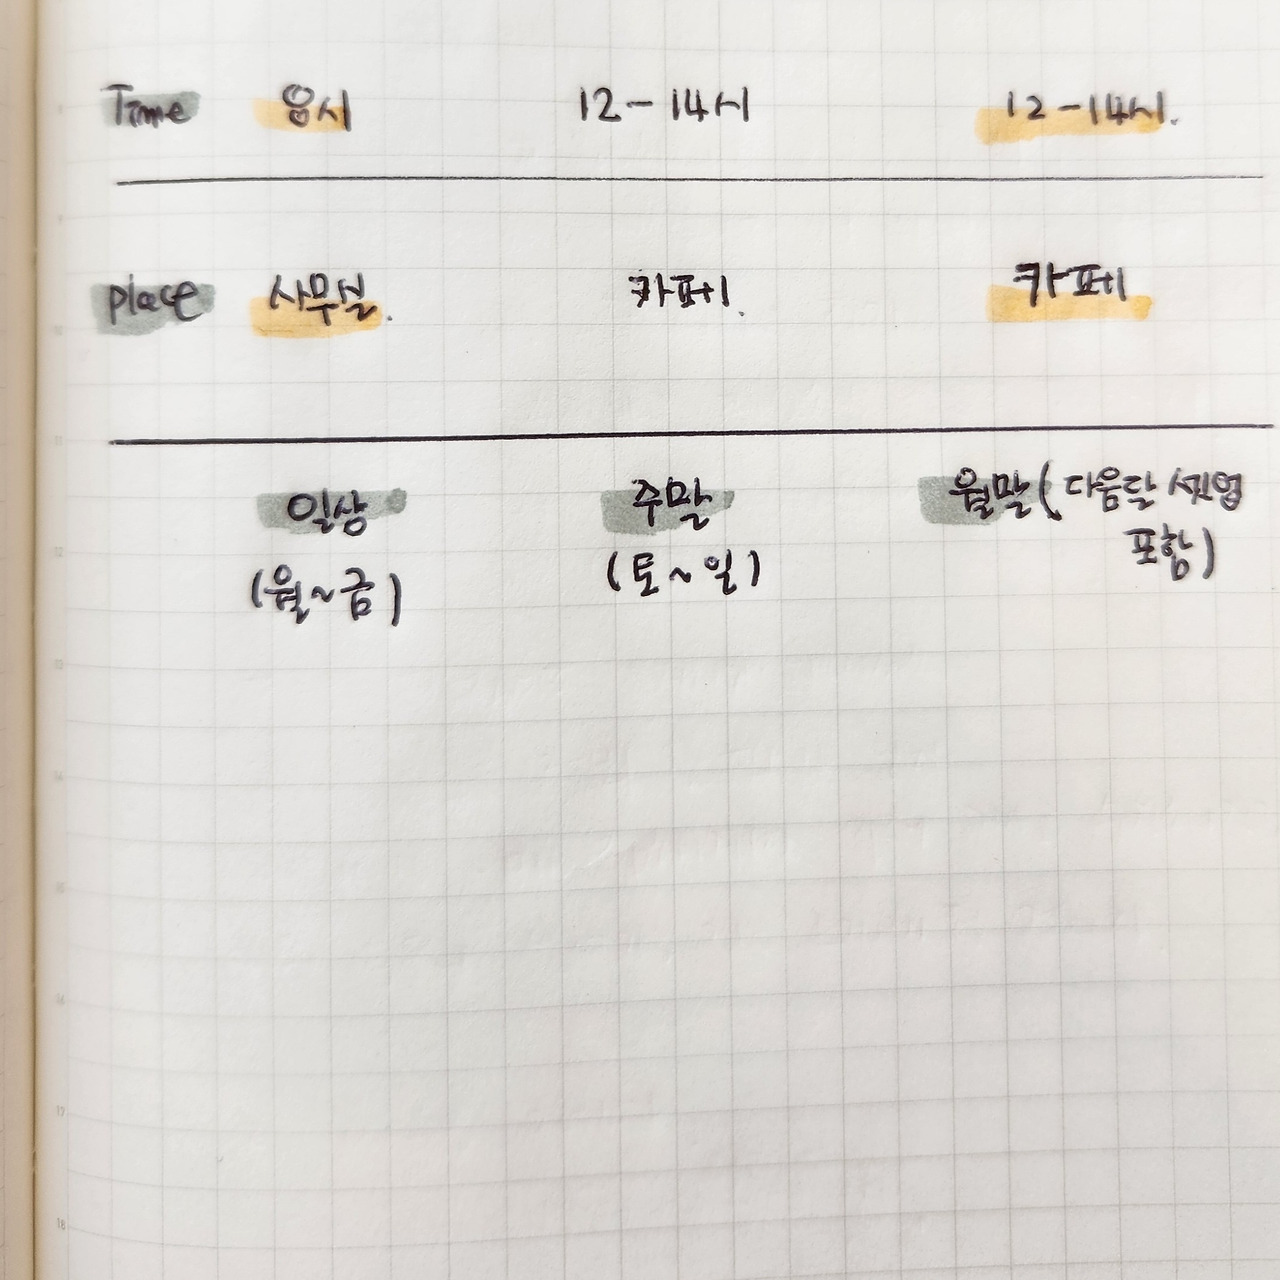 Time 12-14시 12-14시.
place 사무실. 카페. 카페
일상 주말 월말(다음달 셋업
포함)
(월~금) (토~일)